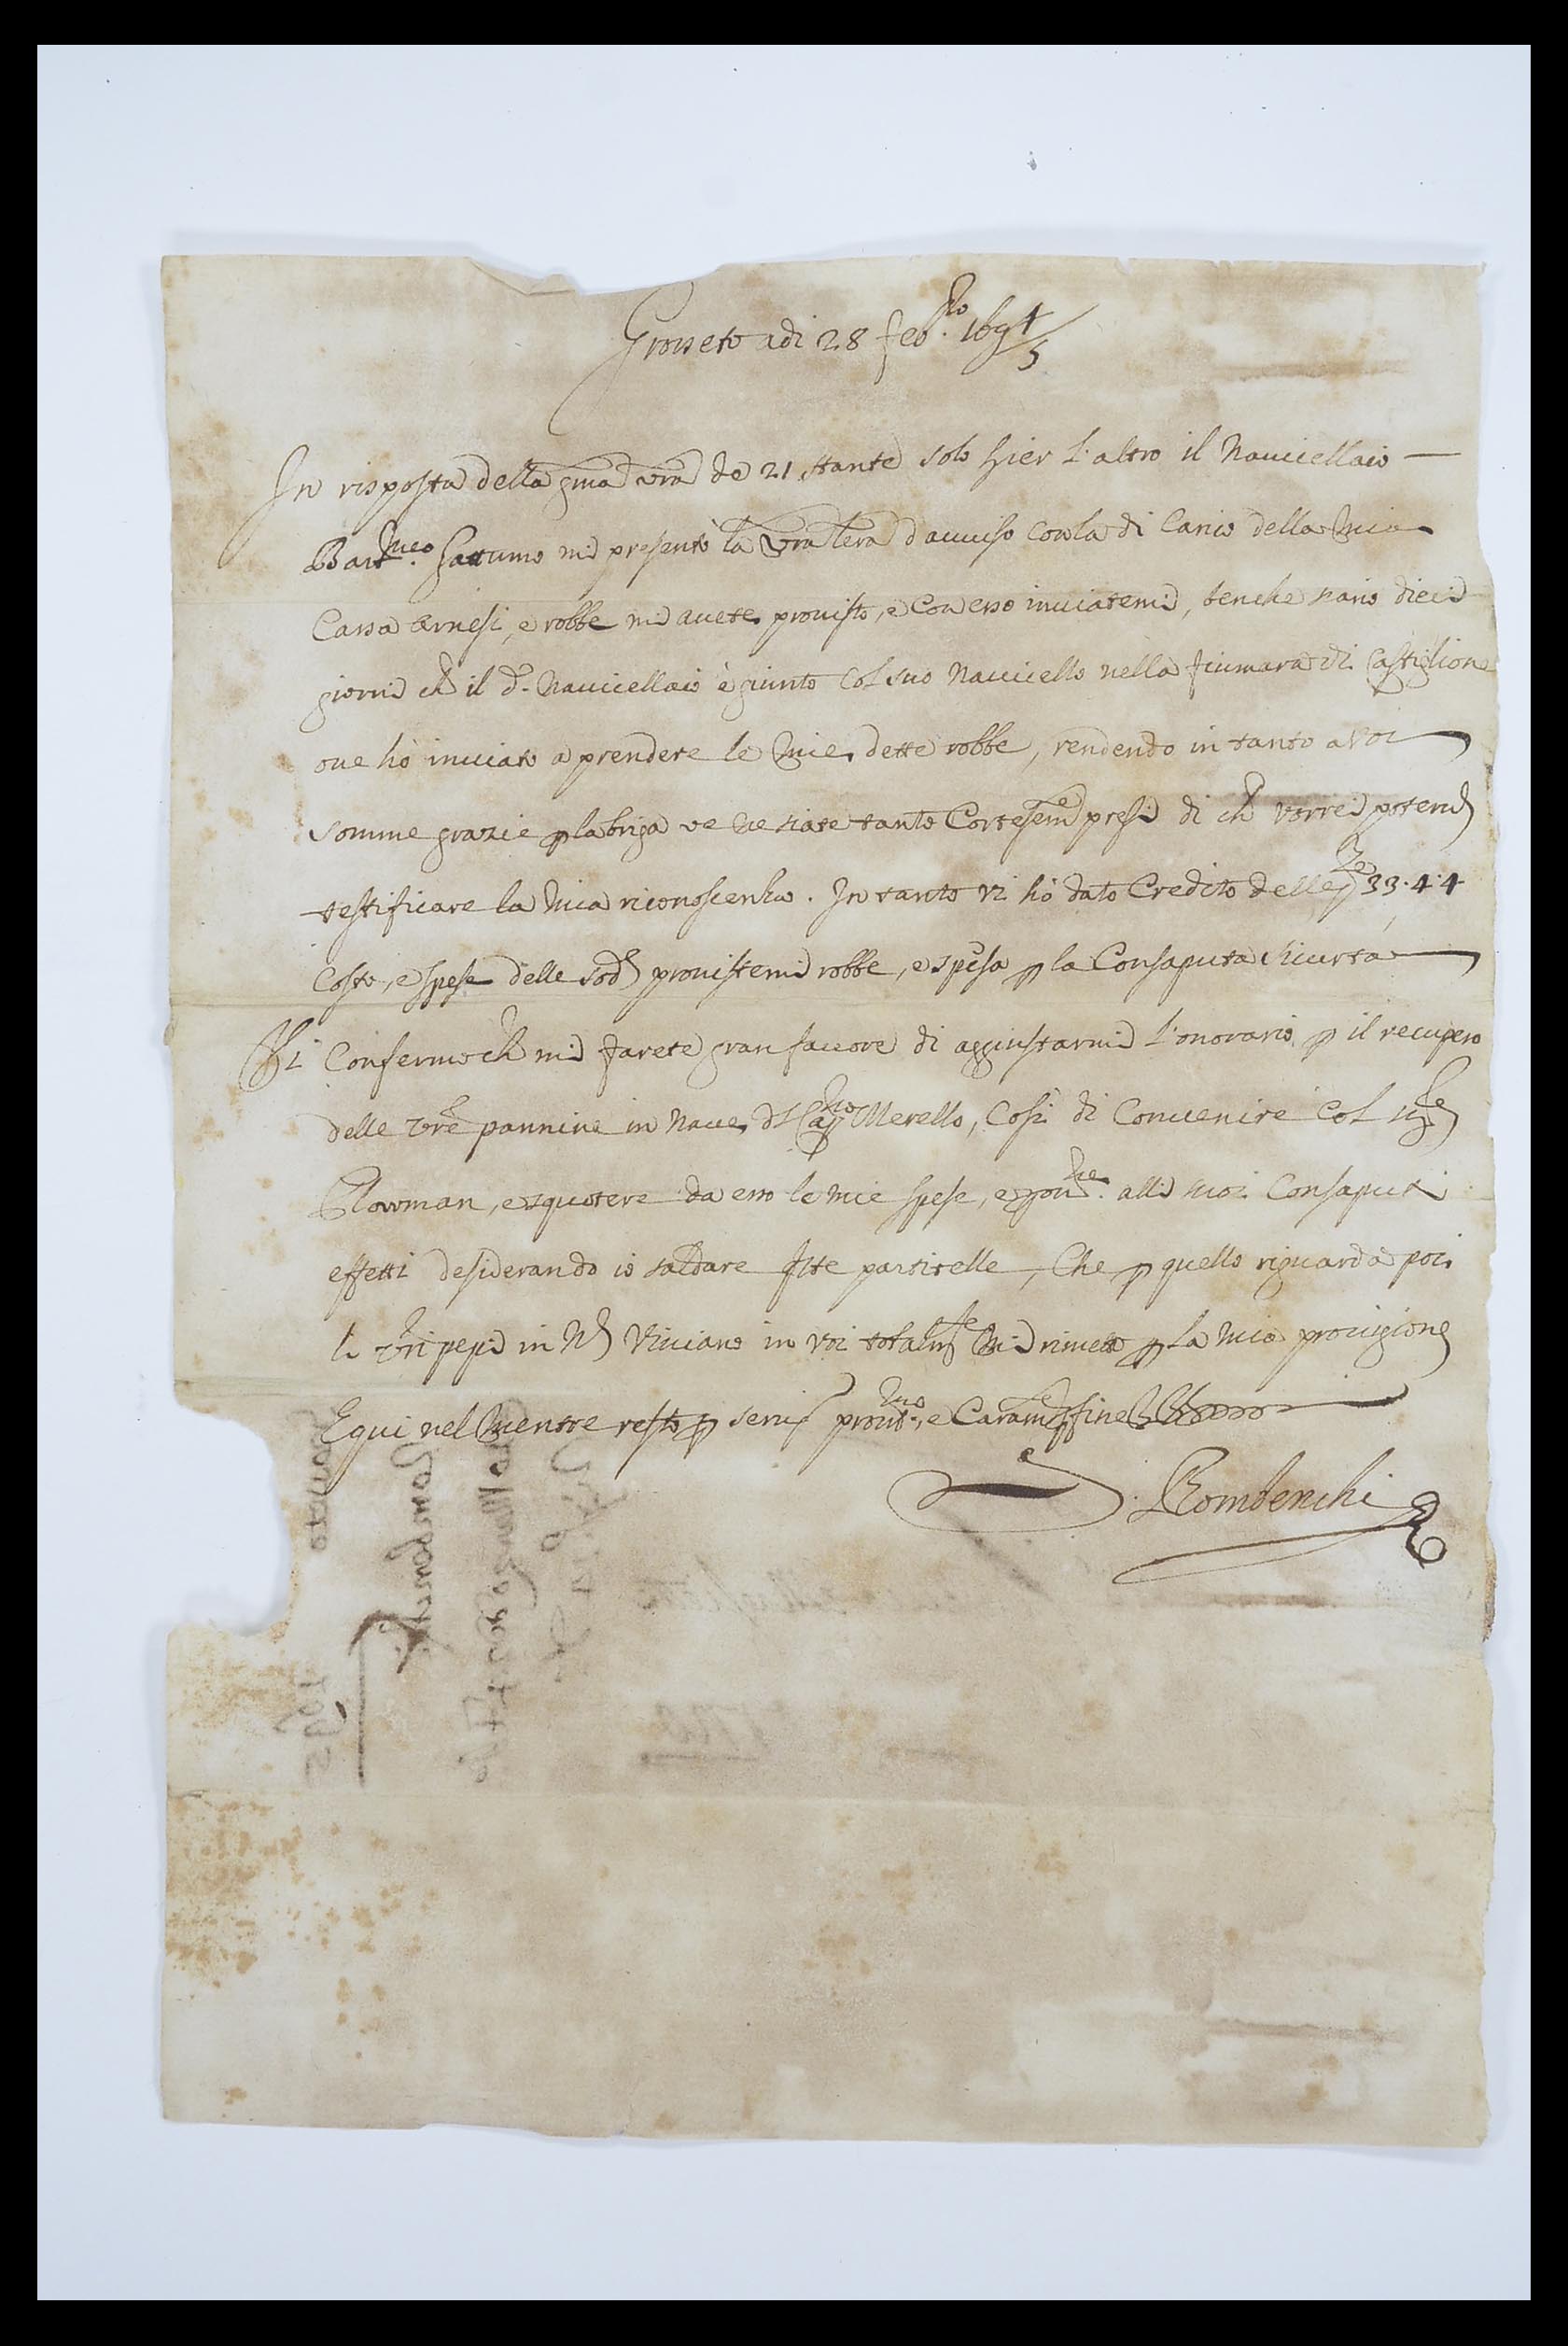 Grosseto adi 28 feb.ro 1694/5
In risposta della gma vra de 21 stante solo hier l'altro il Nauicellaio
Bart.meo Gattumo mi presentò la vra lera d'auuiso con la di Carico della mia
Cassa Arnesi, e robbe mi auete prouisto, e con esso inuiatemi, benche siano dieci
giorni ch il d.o Nauicellaio è giunto col suo Nauicello nella fiumara di Castiglione
oue hò inuiato a prendere le mie dette robbe, rendendo in tanto a Voi
somme grazie p la briga ve ne siate tanto Cortesemte presi di ch vorrei poterui
testificare la mia riconoscenza. In tanto vi hò dato Credito delle pze 33.4.4
Costo, e spese delle sod prouistemi robbe, e spesa p la Consaputa sicurta
Vi Confermo ch mi farete gran fauore di aggiustarmi l'onorario p il recupero
delle vre pannine in Naue dl Cap.no Merello, Così di Conuenire col sig.re
Plowman, e squotere da esso le mie spese, e prou.ne alli suoi Consaputi
effetti desiderando io saldare qste partitelle, Che p quello riguarda poi
li vri pepi in N Viuiano in voi totalmte mi rimetto p la mia prouigione
E qui nel mentre resto p seru prontmo, e Caramte p fine
Rombenchi
1695